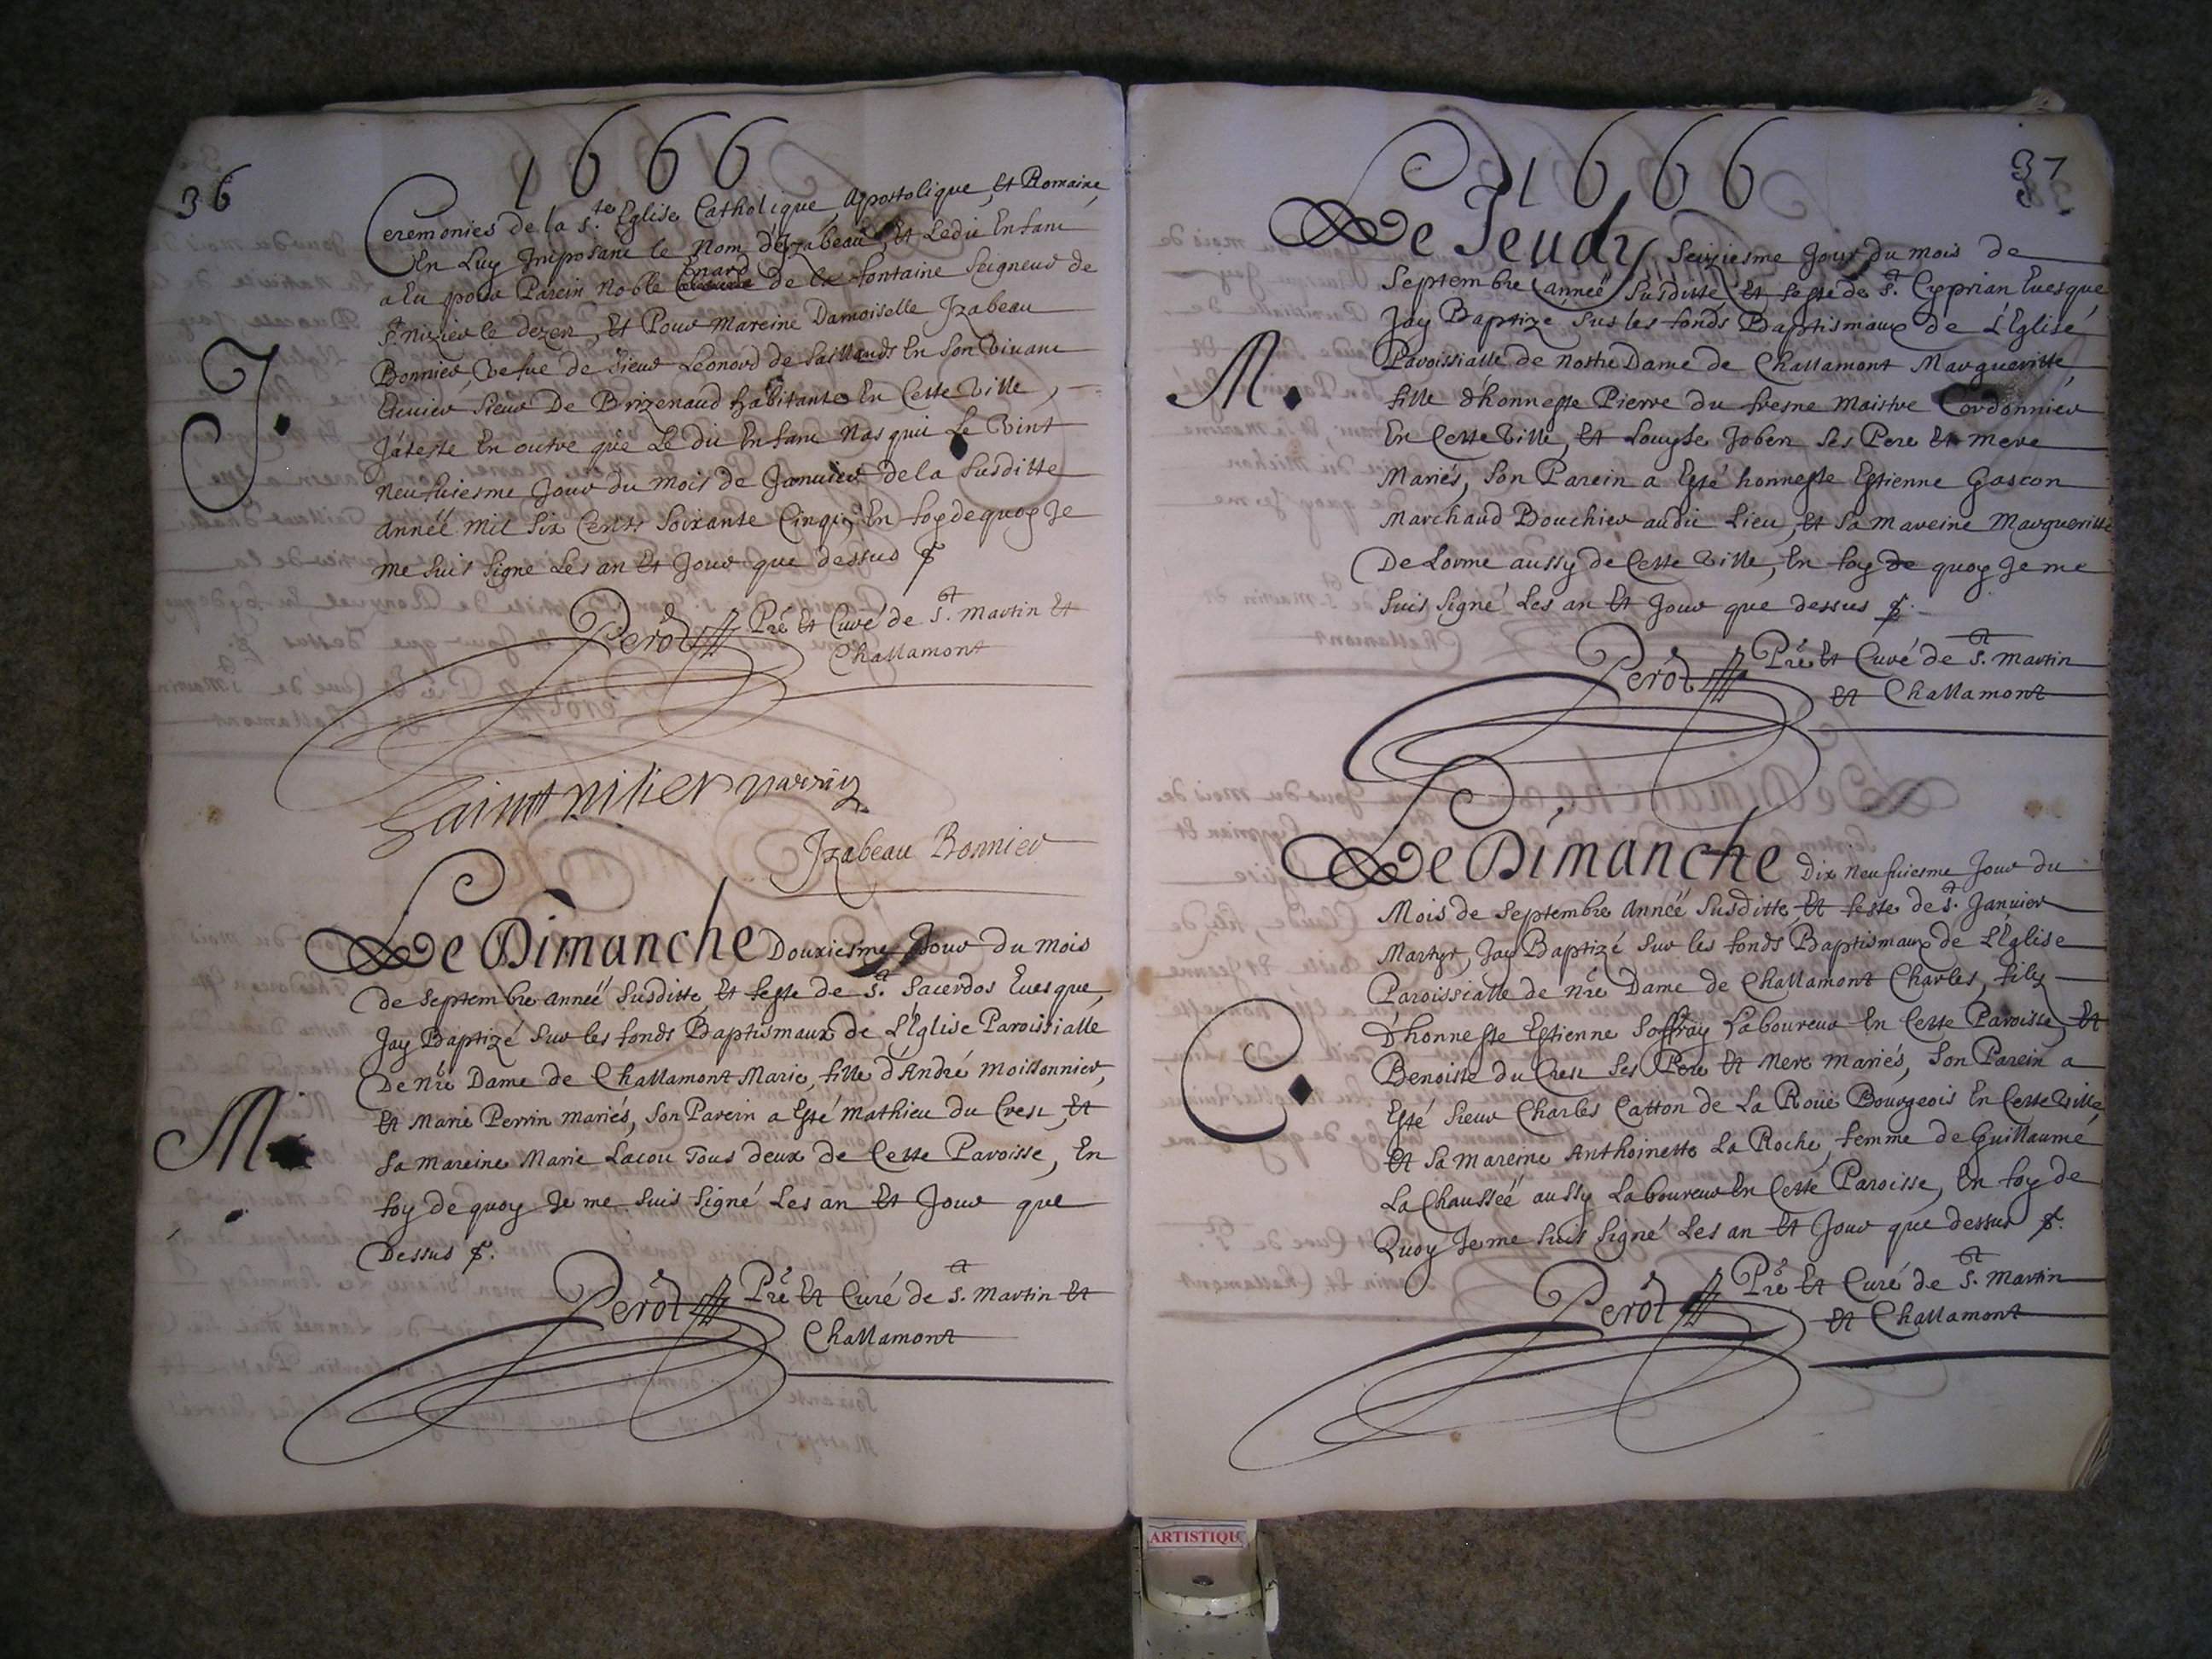 1666
36
Ceremonies de la S.te Eglise Catholique, Apostolique, Et Romaine,
En Luy Imposant le Nom d'Izabeau, Et Ledit Enfant
a Eu pour Parein Noble Enard de la fontaine Seigneur de
St Nizier le dezert, Et Pour Mareine Damoiselle Izabeau
Bonnier, Vefue de Sieur Leonord de Saillands En Son Viuant
Escuier Sieur De Brizenaud habitante En Cette Ville,
J'ateste En outre que Le dit Enfant Nasquit Le Vint
Neufuiesme Jour du Mois de Januier de la Susditte
Année Mil Six Cents Soixante Cinq, En foy de quoy Je
me Suis Signé Les an Et Jour que dessus
I.
Perôd Prê Et Curé de St. Martin Et
Challamont
Saint nisier parrin
Izabeau Bonnier
Le Dimanche Douziesme Jour du Mois
de Septembre année Susditte, Et feste de St. Sacerdos Euesque,
Jay Baptizé Sur les fonds Baptismaux de L'Eglise Paroissialle
De Nrê Dame de Challamont Marie, fille d'André Moissonnier,
Et Marie Perrin mariés, Son Parein a Esté Mathieu du Crest, Et
Sa Mareine Marie Lacou Tous deux de Cette Paroisse, En
foy de quoy Je me Suis Signé Les an Et Jour que
Dessus
M.
Perôd Prê Et Curé de St. Martin Et
Challamont
1666
37
Le Jeudy Seiziesme Jour du Mois de
Septembre année Susditte, Et feste de St. Cyprian Euesque
Jay Baptizé Sus les fonds Baptismaux de L'Eglise
Paroissialle de Nostre Dame de Challamont Margueritte,
fille d'honneste Pierre du fresne Maistre Cordonnier
En Cette Ville, Et Louyse Jobert Ses Pere Et Mere
Mariés, Son Parein a Esté honneste Estienne Gascon
Marchand Bouchier audit Lieu, Et Sa Mareine Margueritte
De Lorme aussy de Cette Ville, En foy de quoy Je me
Suis Signé Les an Et Jour que dessus
M.
Perôd Prê Et Curé de St. Martin
Et Challamont
Le Dimanche Dix Neufuiesme Jour du
Mois de Septembre Année Susditte, Et feste de St. Januier
Martyr, Jay Baptizé Sur les fonds Baptismaux de L'Eglise
Paroissialle de Nrê Dame de Challamont Charles, filz
D'honneste Estienne Soffray Laboureur En Cette Paroisse, Et
Benoiste du Crest Ses Pere Et Mere Mariés, Son Parein a
Esté Sieur Charles Catton de La Roüe Bourgeois En Cette Ville
Et Sa Mareine Anthoinette La Roche, femme de Guillaume
La Chausseé aussy Laboureur En Cette Paroisse, En foy de
Quoy Je me Suis Signé Les an Et Jour que dessus
C.
Perôd Prê Et Curé de St. Martin
Et Challamont
ARTISTIQU